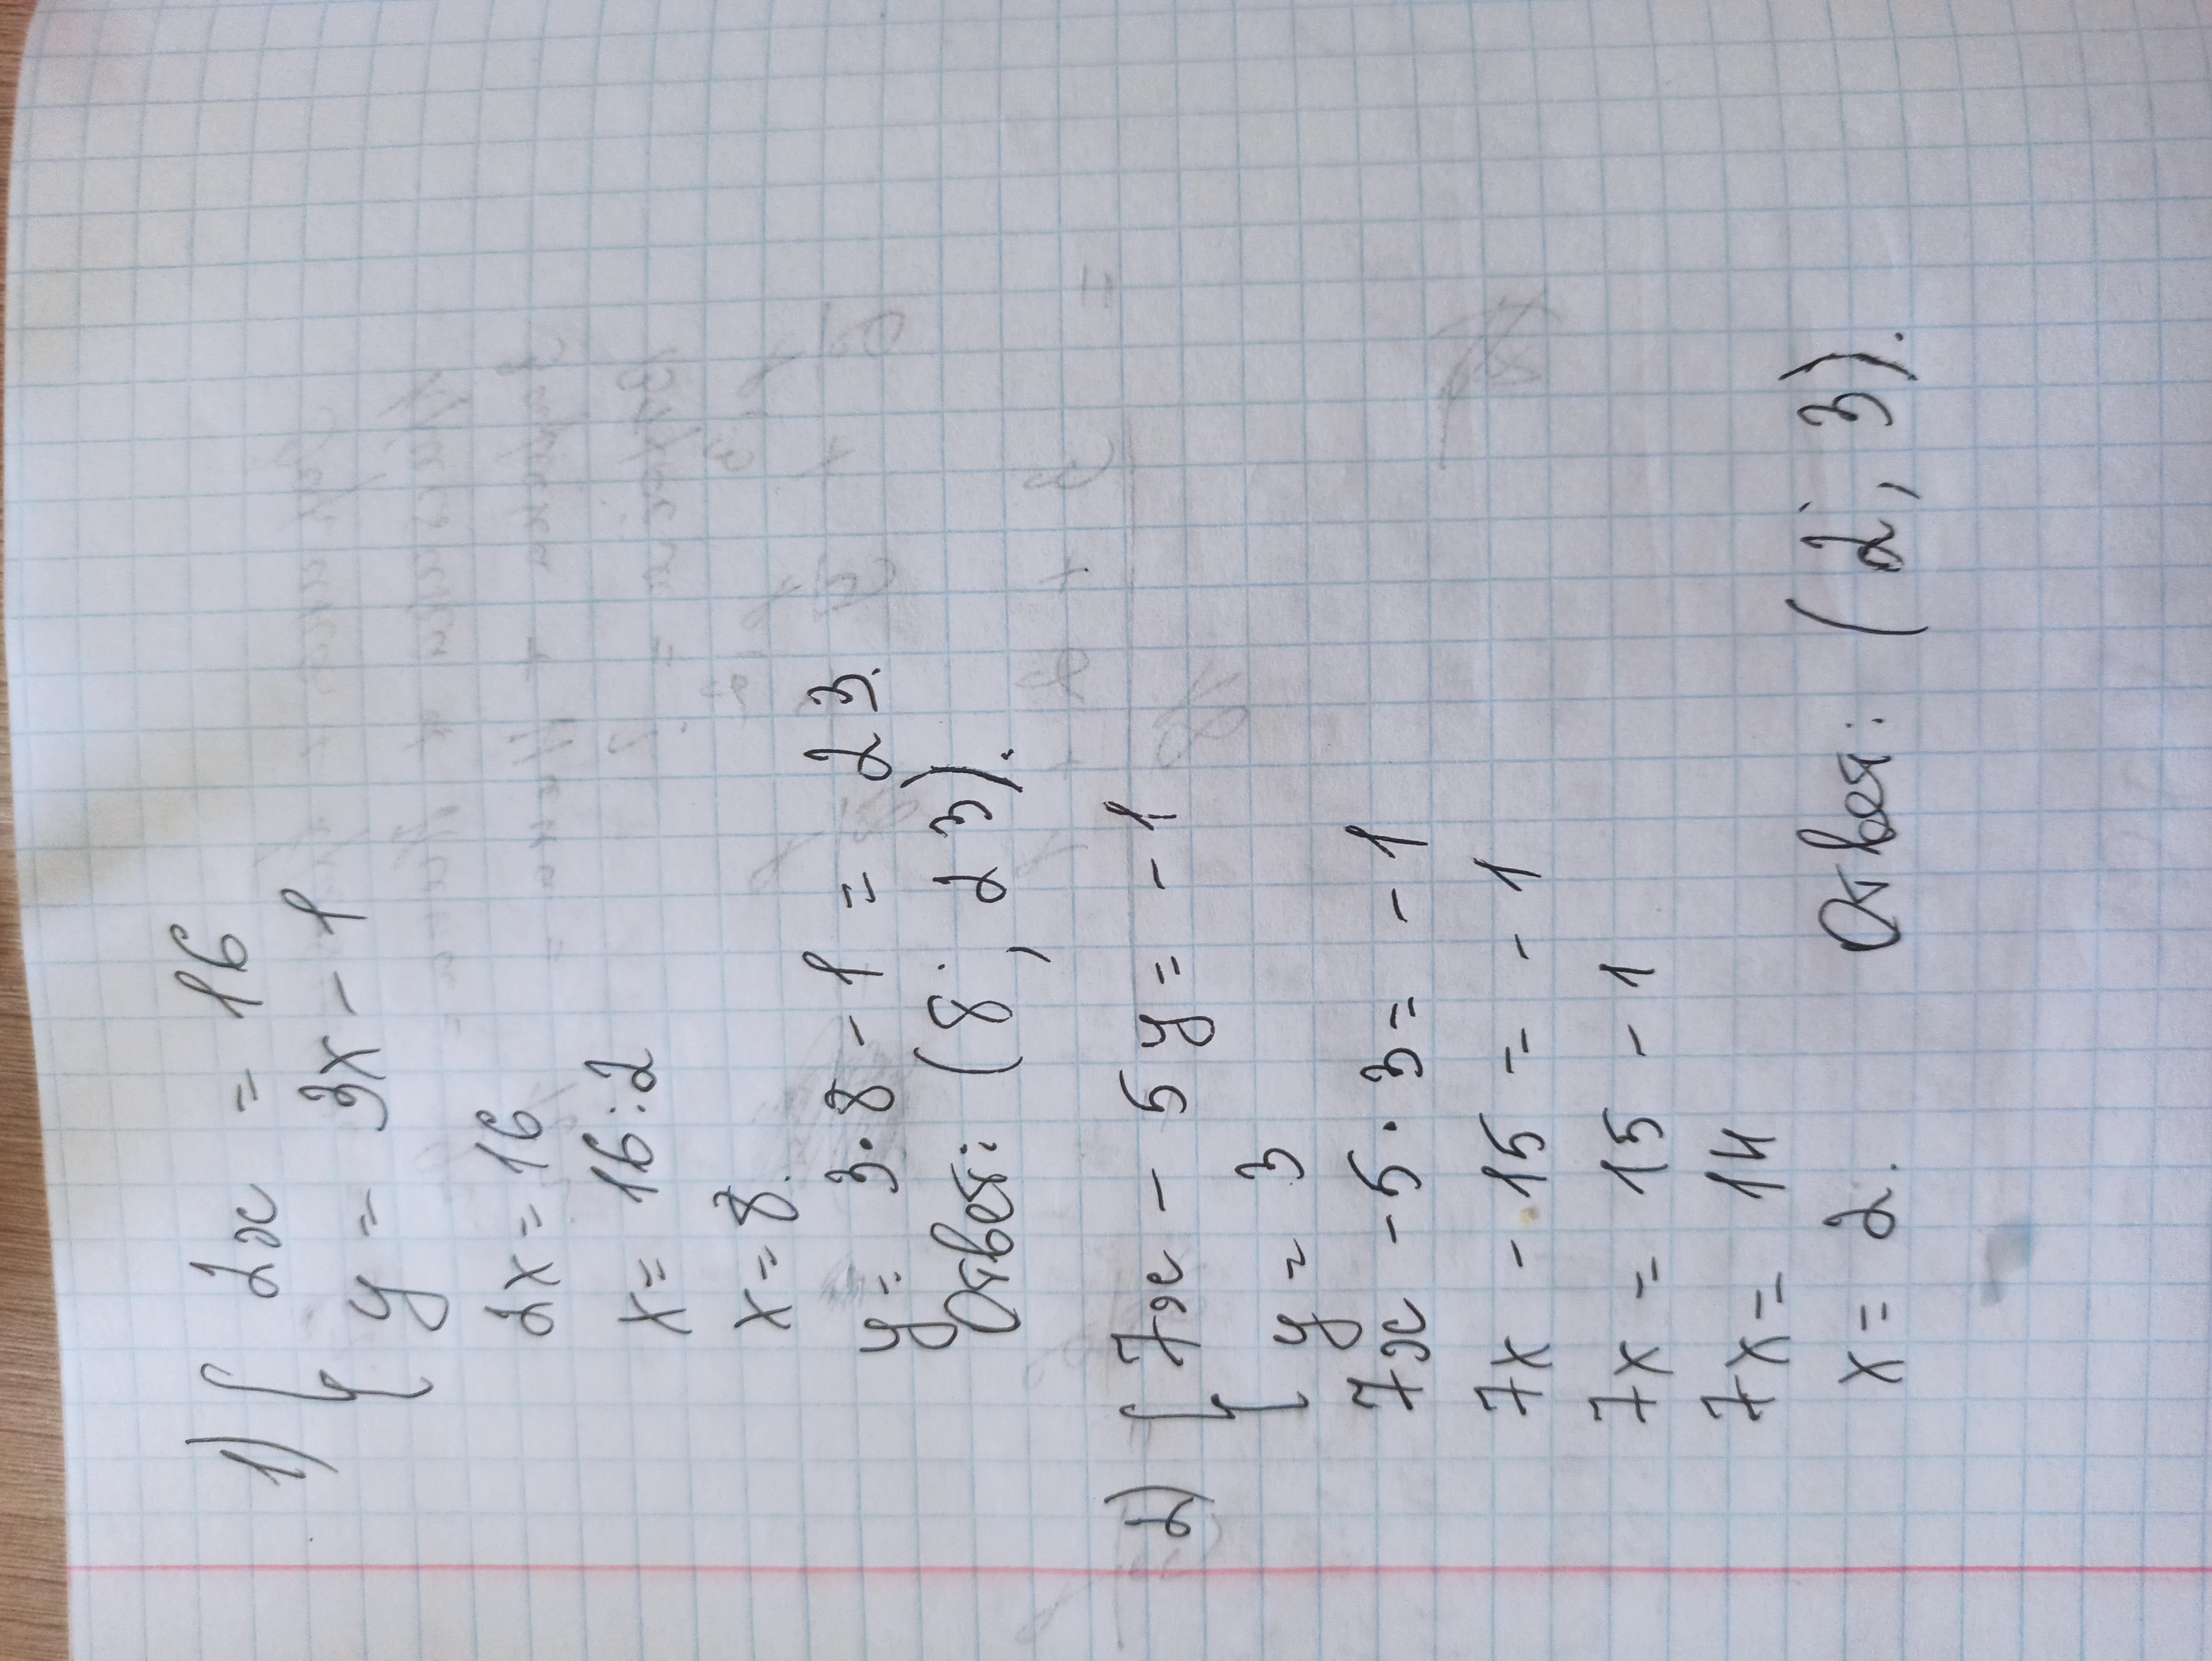 1) { 2x = 16
y = 3x - 1
2x = 16
x = 16 : 2
x = 8.
y = 3 · 8 - 1 = 23.
Ответ: (8; 23).
2) { 7x - 5y = -1
y = 3
7x - 5 · 3 = -1
7x - 15 = -1
7x = 15 - 1
7x = 14
x = 2. Ответ: (2; 3).